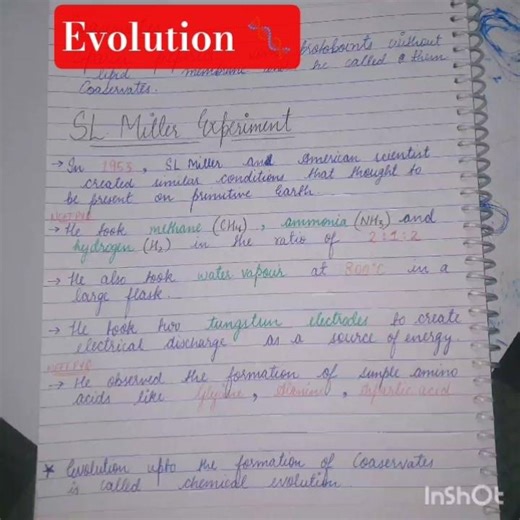 Evolution
protobionts without
lipid membrane he called them
Coaservates.
SL Miller Experiment
→ In 1953, SL Miller and American scientist
created similar conditions that thought to
be present on primitive Earth
→ He took methane (CH4), ammonia (NH3) and
hydrogen (H2) in the ratio of 2:1:2
→ He also took water vapour at 800°C in a
large flask.
→ He took two tungstun electrodes to create
electrical discharge as a source of energy
→ He observed the formation of simple amino
acids like Glycine, Alanine, Aspartic acid
* Evolution upto the formation of Coaservates
is called chemical evolution
InShOt